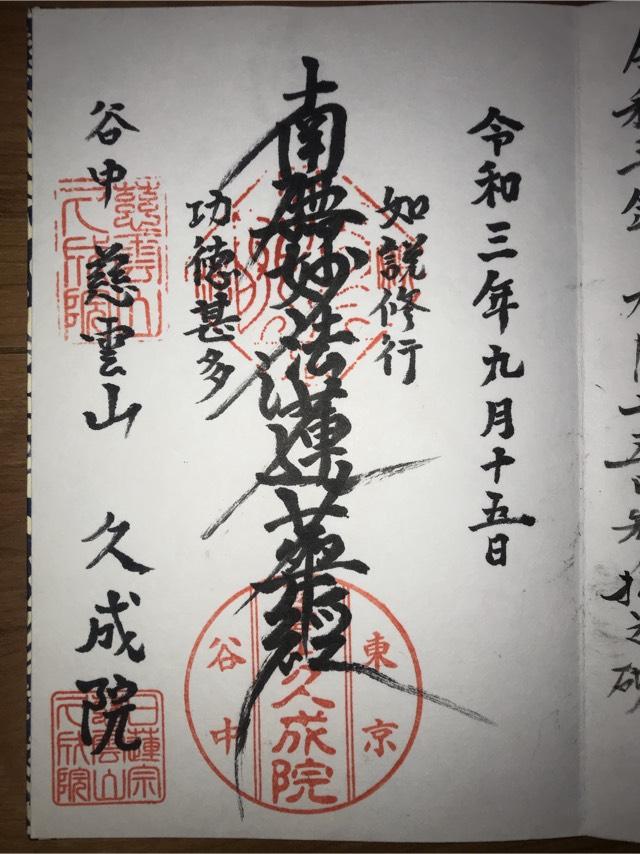 令和三年九月十五日
如説修行
南無妙法蓮華経
功徳甚多
谷中 慈雲山 久成院
慈雲山
久成院
東京
久成院
谷中
日蓮宗
慈雲山
久成院